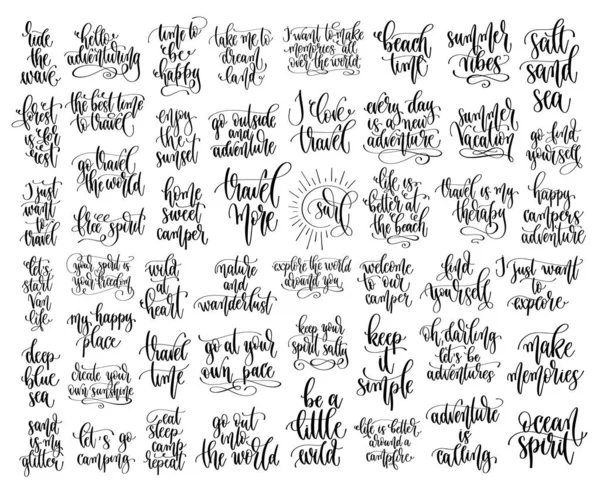 ride
the
wave
hello
adventuring
time to
be
happy
take me to
dream
land
I want to make
memories all
over the world
beach
time
summer
vibes
salt
sand
sea
forest
is for
rest
the best time
to travel
enjoy
the
sunset
go outside
and
adventure
I love
travel
every day
is a new
adventure
summer
vacation
go find
yourself
I just
want
to
travel
go travel
the world
free spirit
home
sweet
camper
travel
more
surf
life is
better at
the beach
travel is my
therapy
happy
campers
adventure
let's
start
van
life
your spirit is
your freedom
wild
at
heart
nature
and
wanderlust
explore the world
around you
welcome
to our
camper
find
yourself
I just want
to
explore
my happy
place
deep
blue
sea
create your
own sunshine
travel
time
go at your
own pace
keep your
spirit salty
keep
it
simple
oh, darling
let's be
adventures
make
memories
sand
is my
glitter
let's go
camping
eat
sleep
camp
repeat
go out
into
the world
be a
little
wild
life is better
around a
campfire
adventure
is
calling
ocean
spirit